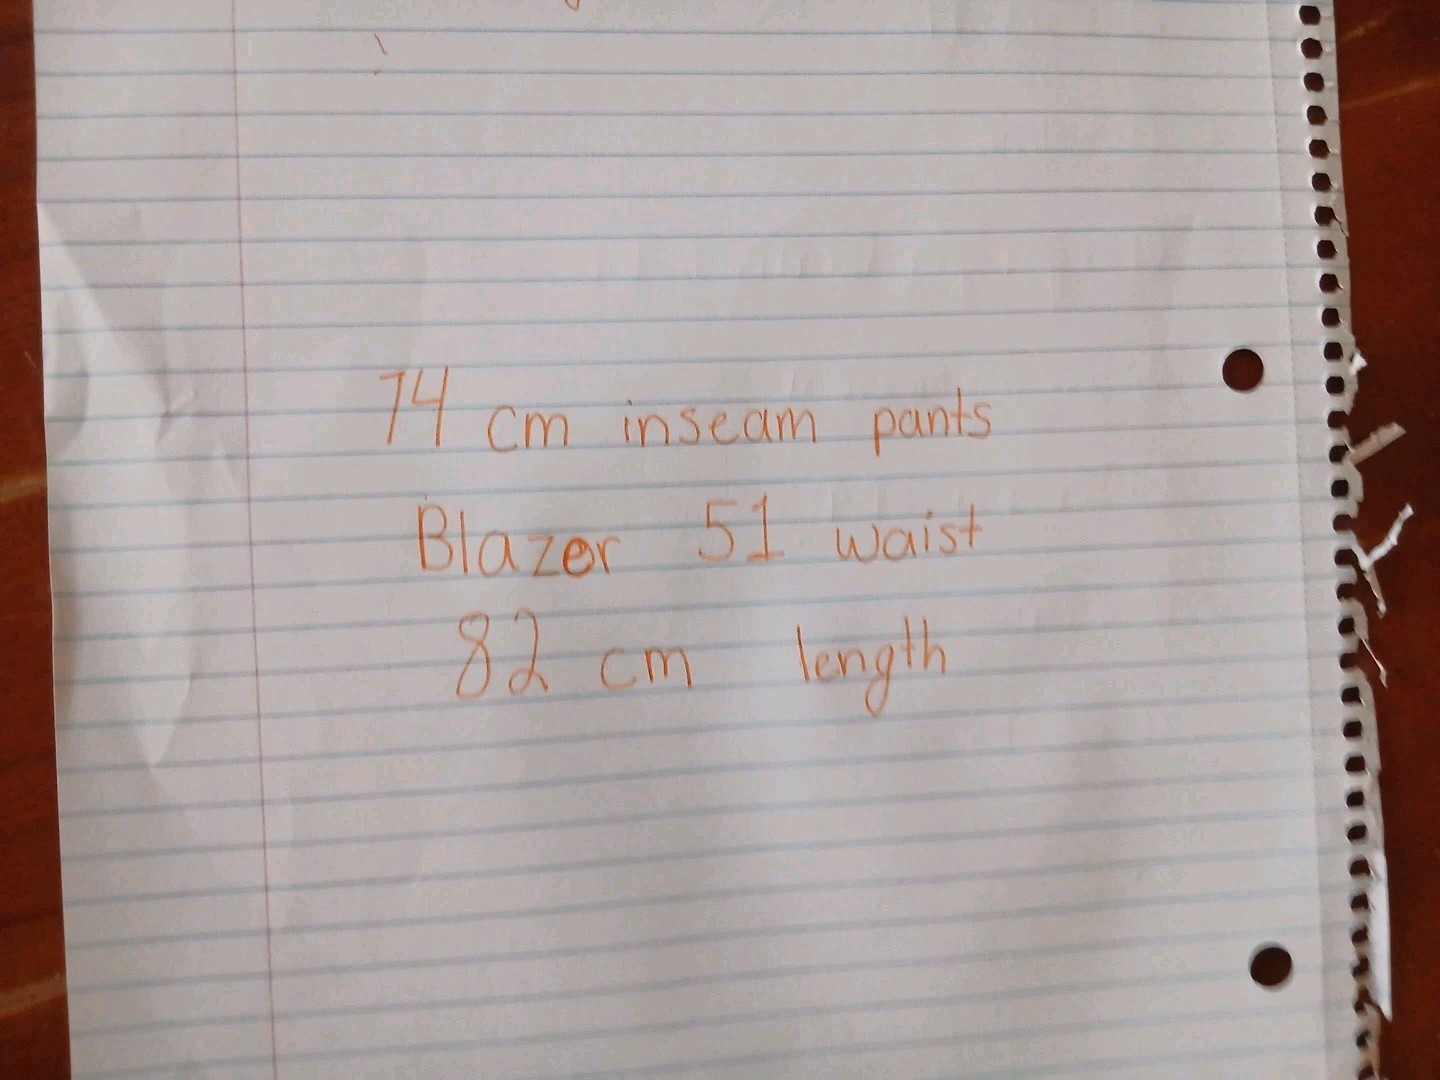 74 cm inseam pants
Blazer 51 waist
82 cm length